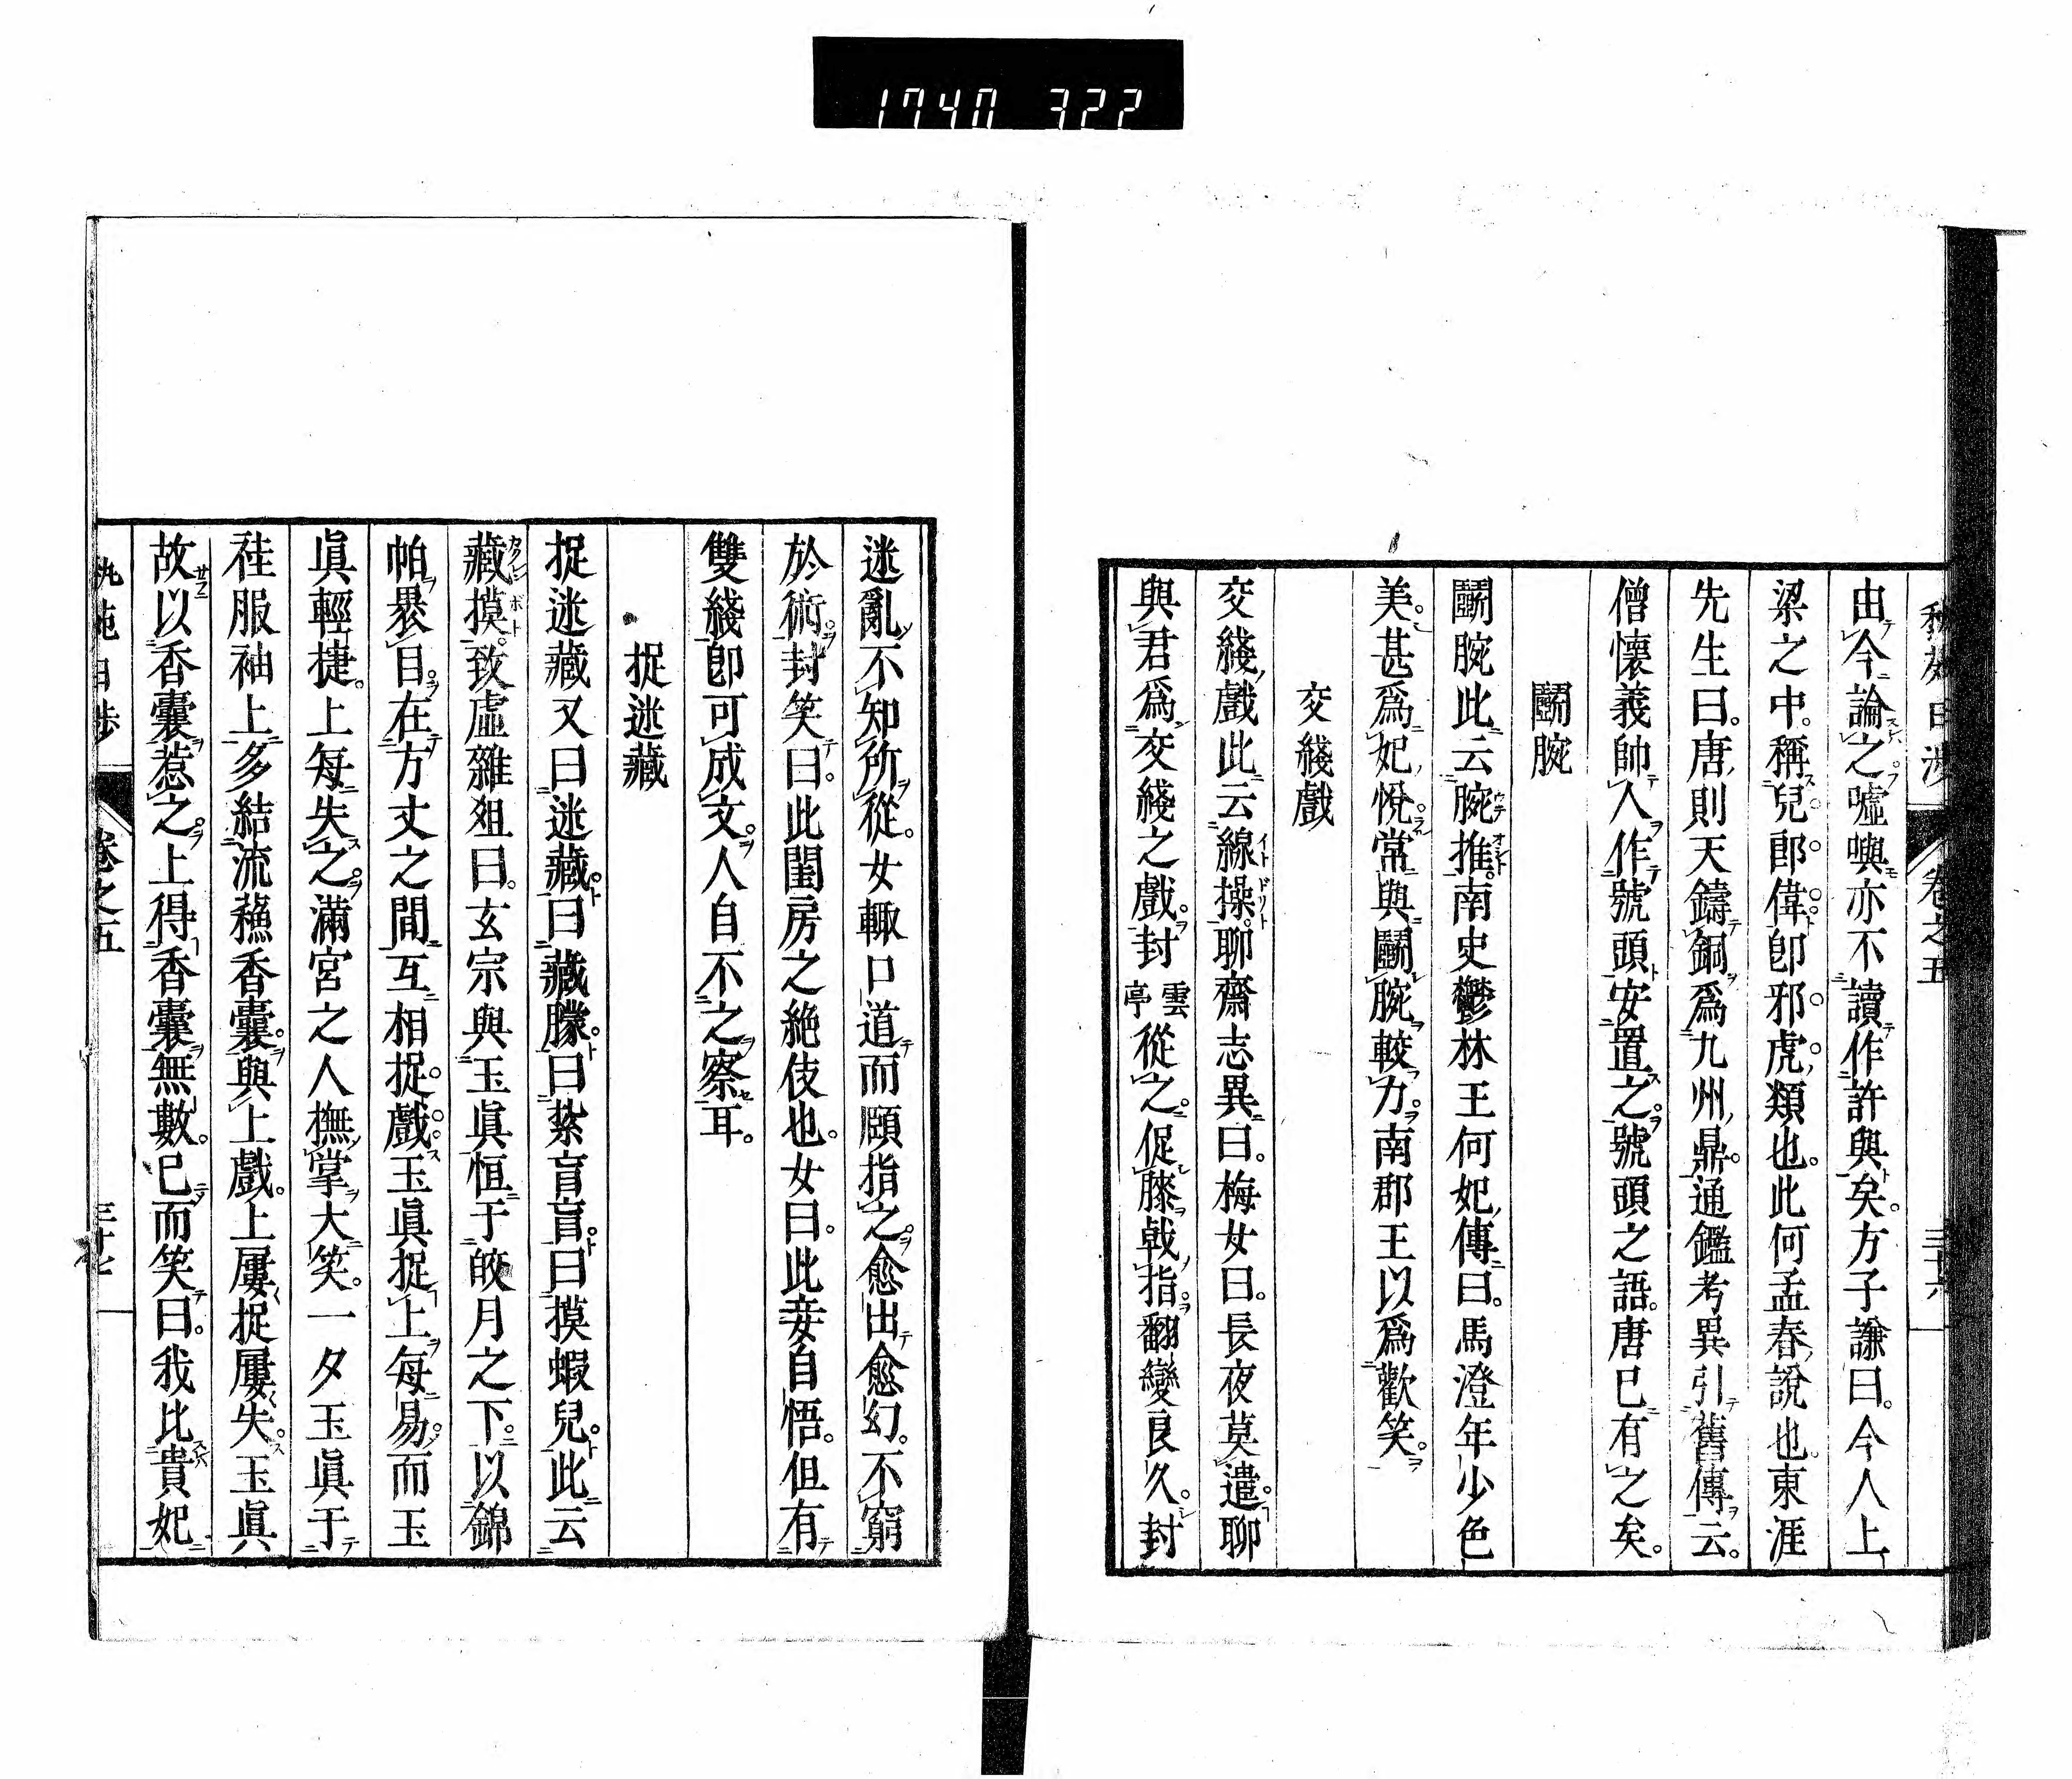 1740 322
卷之五
由今論之噓嘫亦不讀作許與矣。方子謙曰。今人上
梁之中。稱兒郎偉卽邪虎類也。此何孟春說也。東涯
先生曰。唐則天鑄銅爲九州鼎。通鑑考異引舊傳云。
僧懷義帥人作號頭安置之。號頭之語。唐已有之矣。
鬭腕
鬭腕此云腕推。南史鬱林王何妃傳曰。馬澄年少色
美。甚爲妃悅。常與鬭腕較力。南郡王以爲歡笑。
交綫戲
交綫戲此云線操。聊齋志異曰。梅女曰。長夜莫遣。聊
與君爲交綫之戲。封雲亭從之。促膝戟指。翻變良久。封
迷亂不知所從。女輒口道而頤指之。愈出愈幻。不窮
於術。封笑曰。此閨房之絶伎也。女曰。此妾自悟。但有
雙綫卽可成文。人自不之察耳。
捉迷藏
捉迷藏又曰迷藏。曰藏朦。曰紮盲盲。曰摸蝦兒。此云
藏摸。致虛雜俎曰。玄宗與玉眞恒于皎月之下。以錦
帕裹目。在方丈之間。互相捉戲。玉眞捉上每易。而玉
眞輕捷。上每失之。滿宮之人撫掌大笑。一夕玉眞于
袿服袖上多結流蘓香囊。與上戲。上屢捉屢失。玉眞
故以香囊惹之。上得香囊無數。已而笑曰。我比貴妃
卷之五
三十七